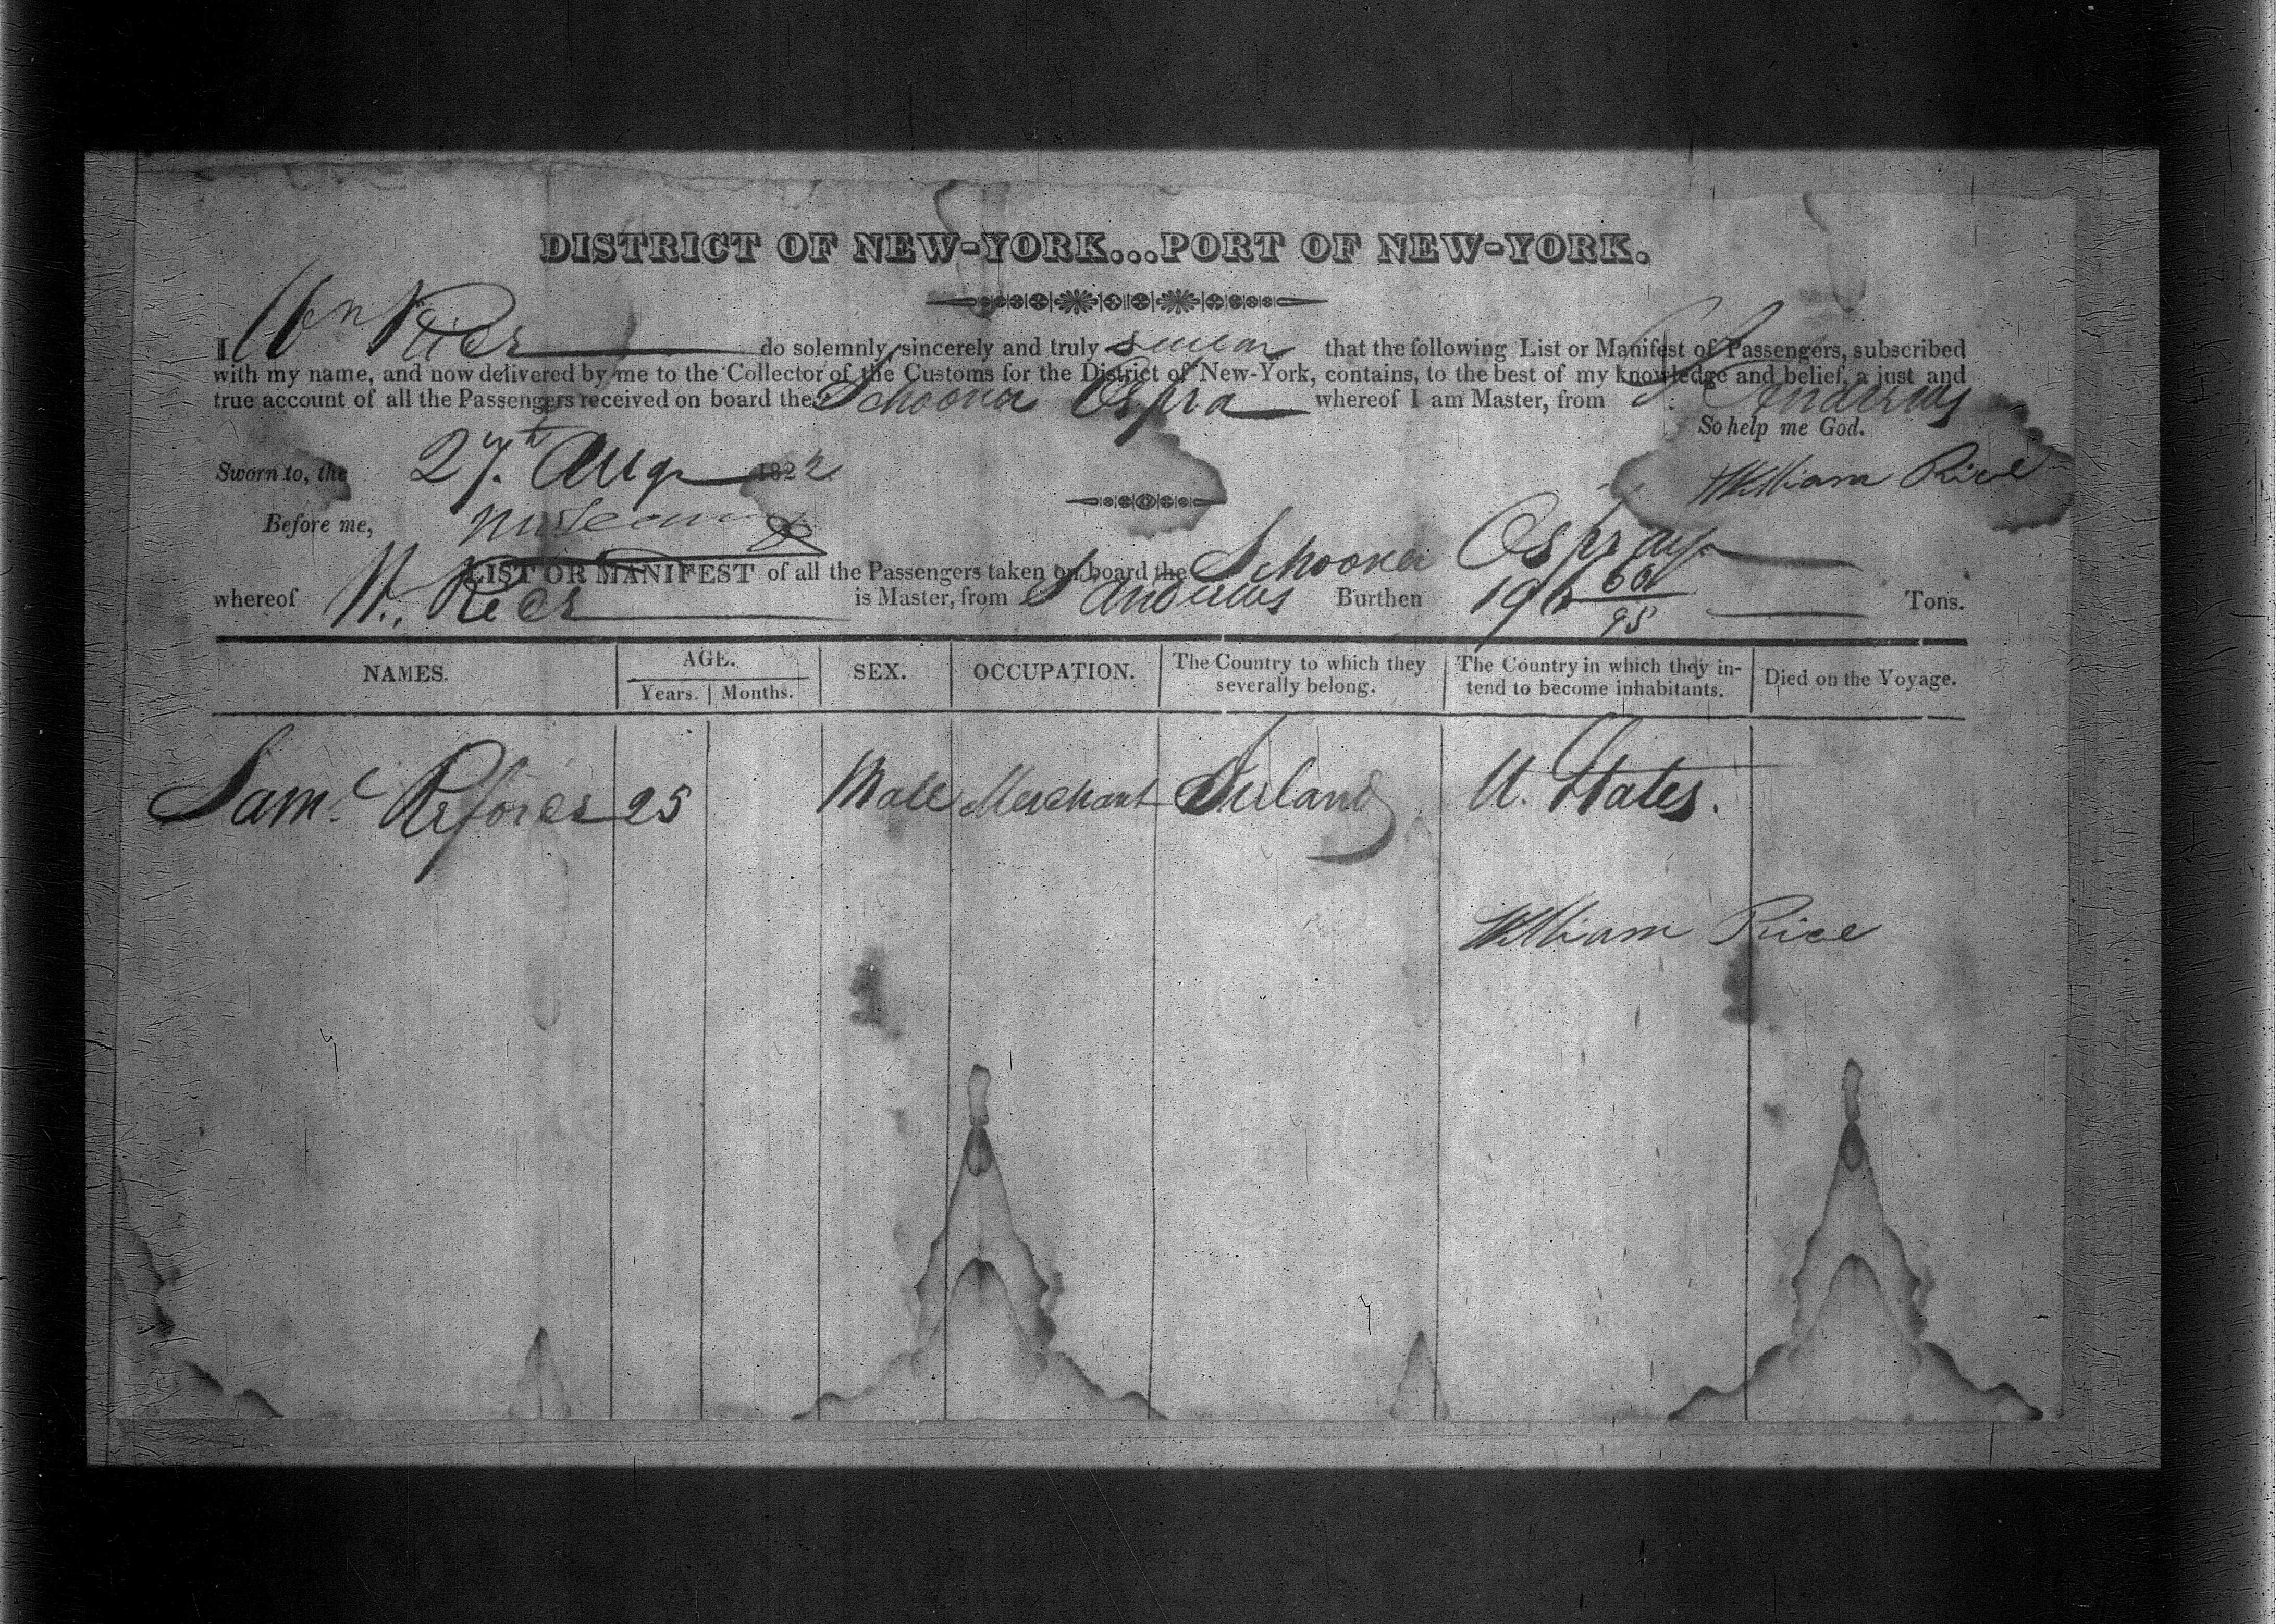 DISTRICT OF NEW-YORK...PORT OF NEW-YORK.
I Wm do solemnly, sincerely and truly swear that the following List or Manifest of Passengers, subscribed
with my name, and now delivered by me to the Collector of the Customs for the District of New-York, contains, to the best of my knowledge and belief, a just and
true account of all the Passengers received on board the Schooner Ospra whereof I am Master, from St Andrews
So help me God.
Sworn to, the 27th Aug 1822 William Rice
Before me,
LIST OR MANIFEST of all the Passengers taken on board the Schooner Ospray
whereof W. is Master, from St Andrews Burthen 95 Tons.
NAMES. AGE. Years. Months. SEX. OCCUPATION. The Country to which they severally belong. The Country in which they intend to become inhabitants. Died on the Voyage.
Saml 25 Male Merchant Ireland U. States.
William Rice